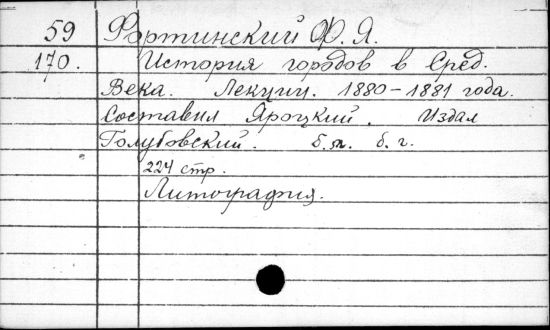 59 Фортинский Ф. Я.
170. История городов в Сред.
Века. Лекции. 1880-1881 года.
Составил Яроцкий. Издал
Голубовский. б. м. б. г.
224 стр.
Литография.